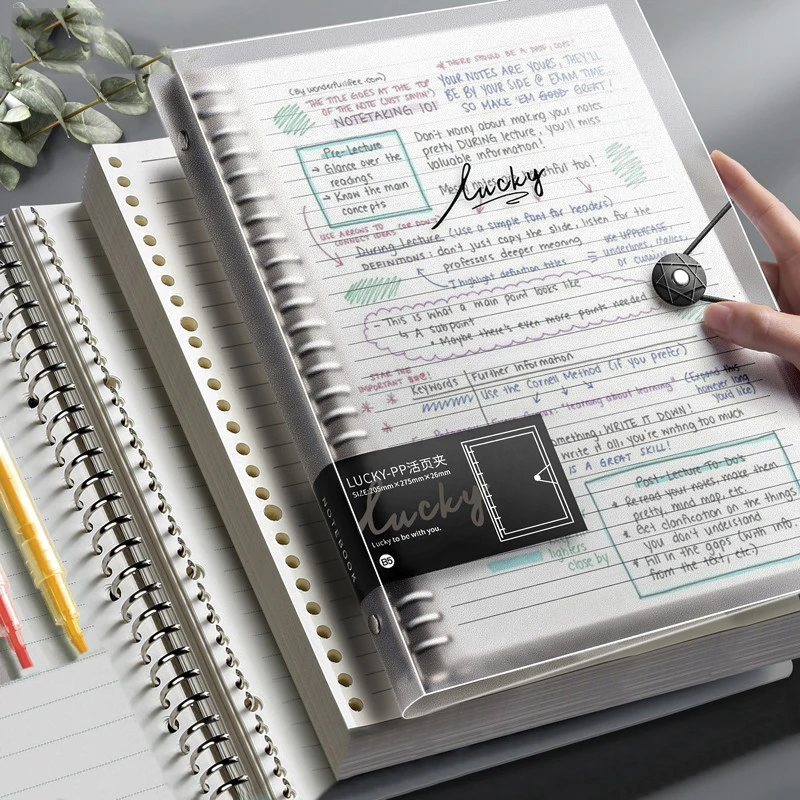 * THERE SHOULD BE A DATE, TOO!
(By wonderfullifee.com)
THE TITLE GOES AT THE TOP
OF THE NOTE (JUST SAYIN')
NOTETAKING 101
YOUR NOTES ARE YOURS, THEY'LL
BE BY YOUR SIDE @ EXAM TIME...
SO MAKE 'EM GOOD GREAT!
Pre-Lecture
→ Glance over the
readings
→ Know the main
concepts
Don't worry about making your notes
pretty DURING lecture, you'll miss
valuable information!
too!
lucky
USE ARROWS TO (OR DON'T)
CONNECT IDEAS
During Lecture (Use a simple font for headers)
DEFINITIONS: don't just copy the slide, listen for the
professors deeper meaning
↑ highlight definition titles
= use UPPERCASE,
underlines, italics,
or
- This is what a main point looks like
↳ A subpoint
* Maybe there's even more points needed
STAR THE
IMPORTANT
Keywords
Further Information
Use the Cornell Method (if you prefer)
"learning about learning"
(Expand this
however long
you'd like)
WRITE IT DOWN!
write it all, you're writing too much
IS A GREAT SKILL!
LUCKY-PP活页夹
SIZE:205mm×275mm×26mm
lucky
Lucky to be with you.
B5
NOTEBOOK
close by
Post-Lecture To-Do's
* Re-read your notes, make them
pretty, mind map, etc.
* Get clarification on the things
you don't understand
* Fill in the gaps (with info.
from the text, etc.)